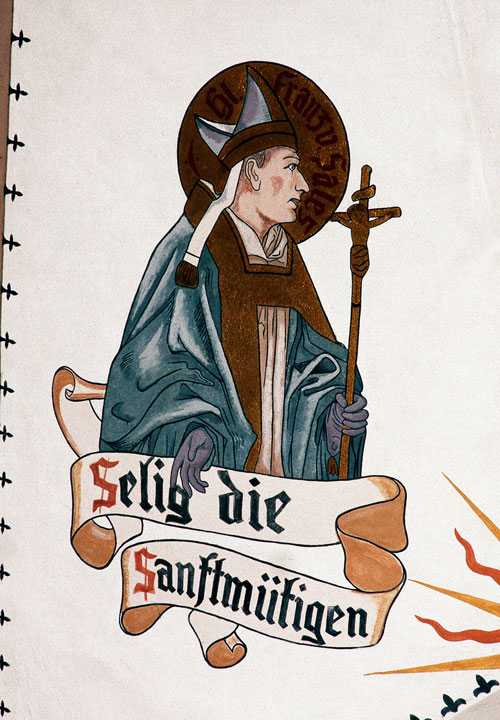 Hl. Franz v Sales
Selig die
Sanftmütigen